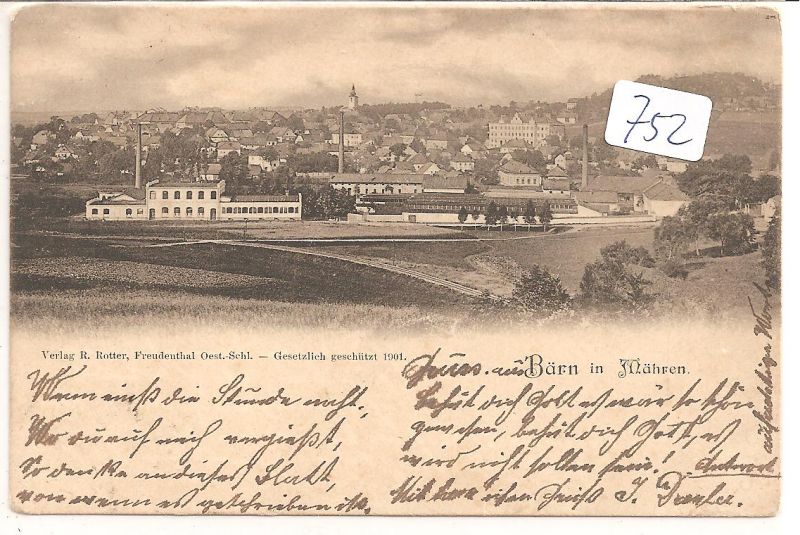 752
Verlag R. Rotter, Freudenthal Oest.-Schl. — Gesetzlich geschützt 1901.
Gruss aus Bärn in Mähren.
Wenn einst die Stunde naht,
Wo du auf mich vergießt,
So denke an dieses Blatt,
von wem es geschrieben ist.
Behüt dich Gott es wär so schön
gewesen, behüt dich Gott, es
wird nicht sollen sein! Antwort
Mit Gruß J.